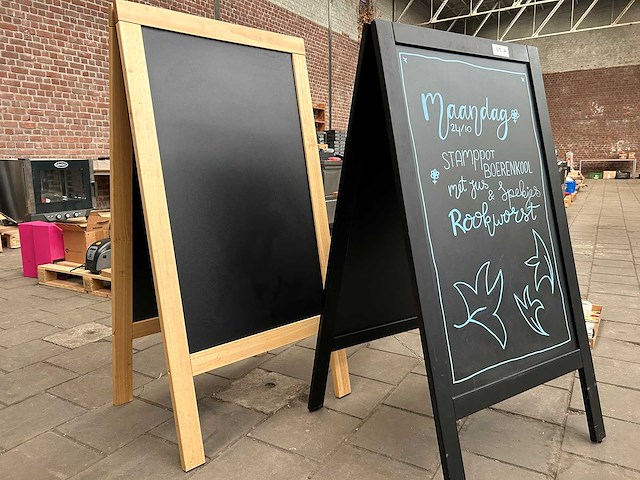 Maandag
24/10
STAMPPOT
BOERENKOOL
met jus
& Spekjes
Rookworst